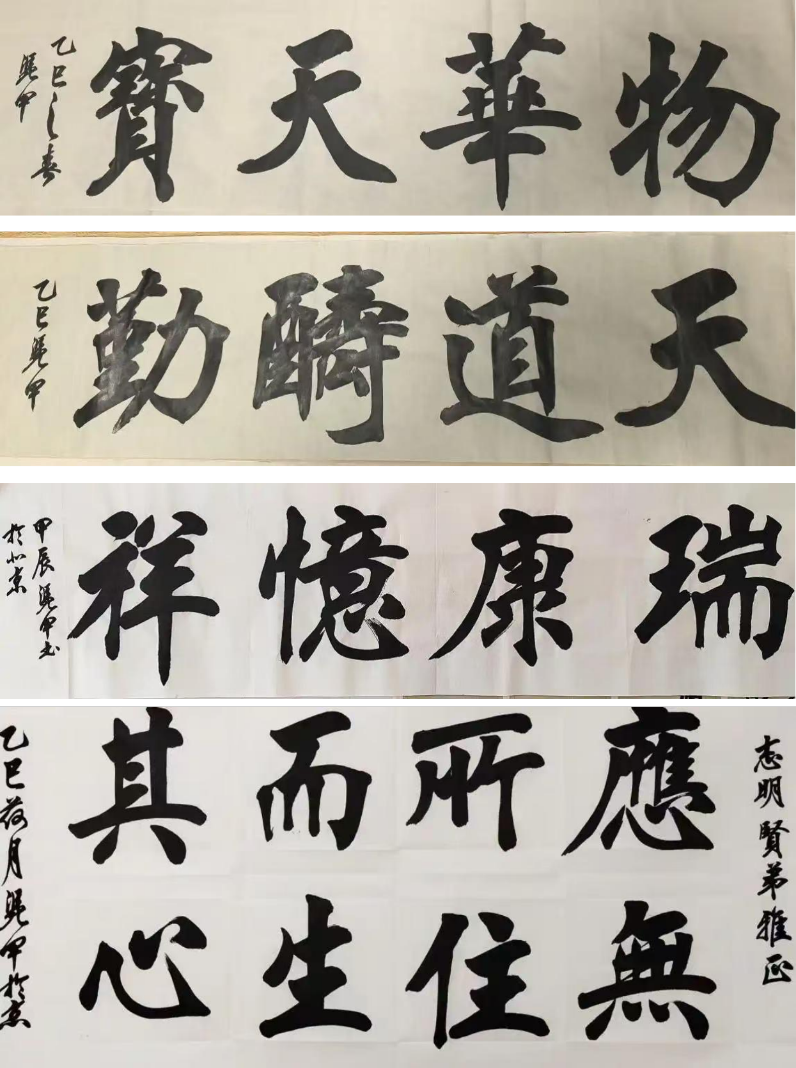 物華天寶
乙巳之春
甲
天道醻勤
乙巳甲
瑞康憶祥
甲辰甲书
於北京
志明賢弟雅正
應無
所住
而生
其心
乙巳荷月甲於京